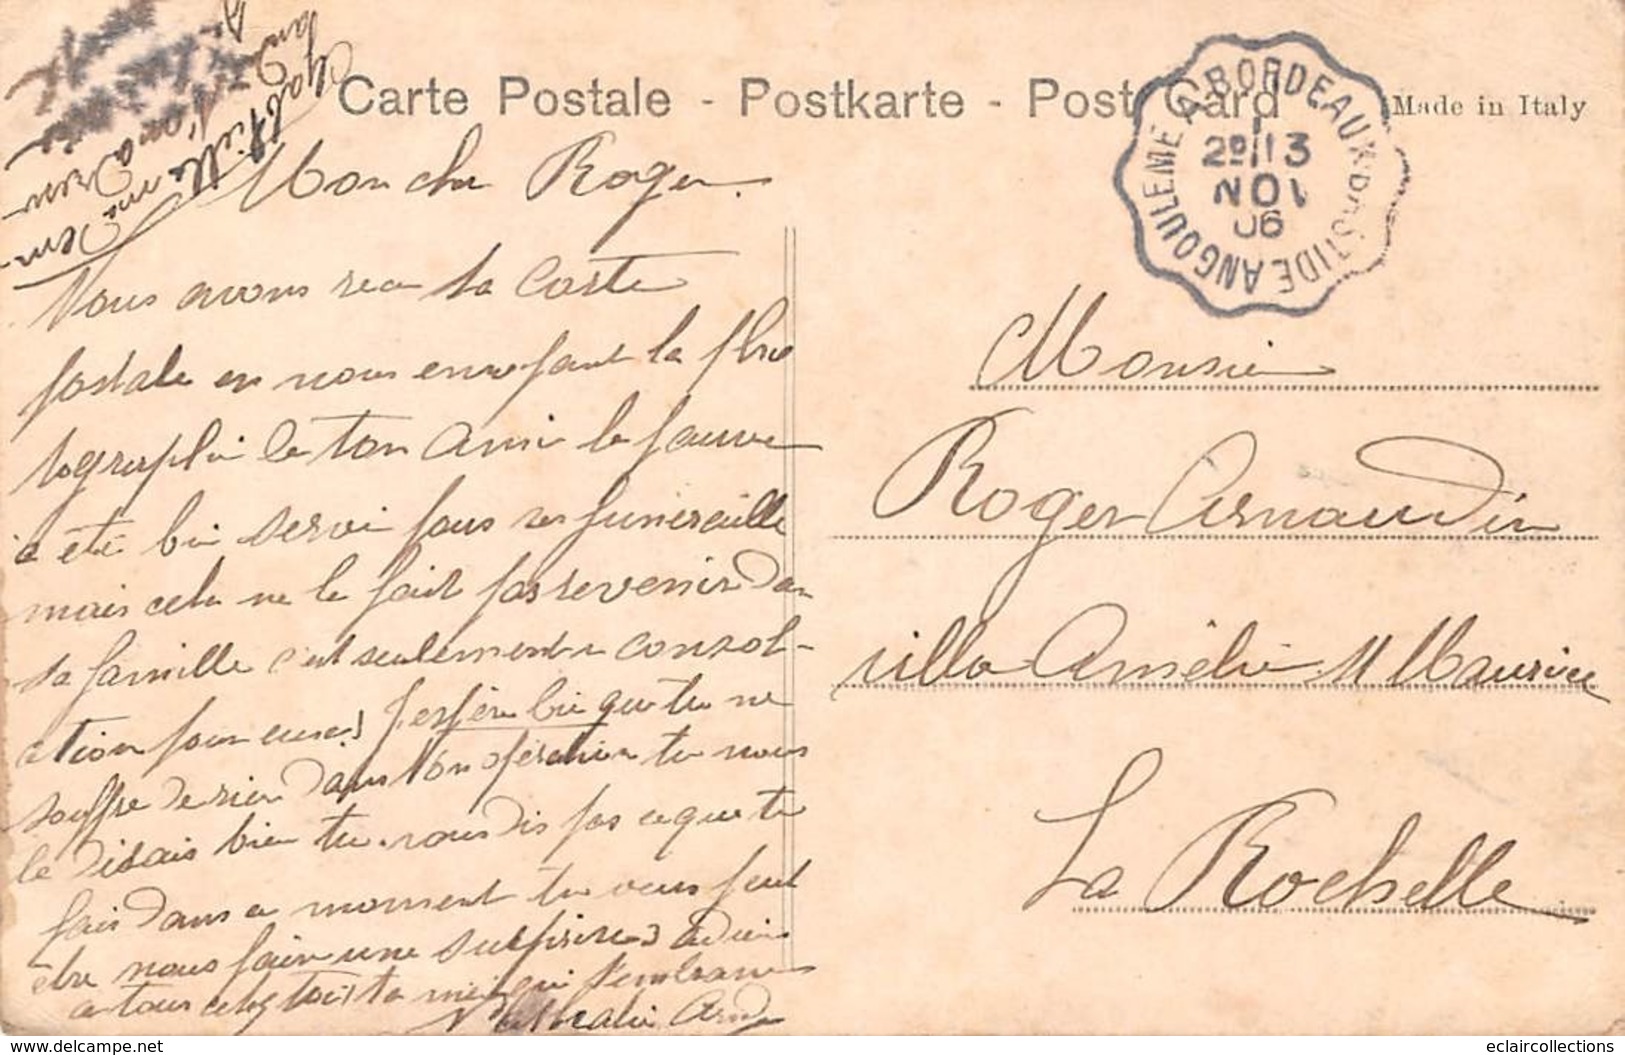 Carte Postale - Postkarte - Post Card
Made in Italy
ANGOULEME A BORDEAUX BASTIDE
2º 13
NOV
06
Mon cher Roger.
Nous avons reçu ta carte
postale en nous envoyant la pho
tographie de ton ami le pauvre
a été bien servi pour ses funeraille
mais cela ne le fait pas revenir dans
sa famille c'est seulement une consol-
ation pour eux j'espère bien que tu ne
souffre de rien dans ton opération tu nous
le disais bien tu nous dis pas ce que tu
fais dans ce moment tu veux peut
être nous faire une surprise adieu
a tous chez toi ta mère qui t'embrasse
Monsieur
Roger Arnaudin
villa Amélie
La Rochelle
eclaircollections
www.delcampe.net